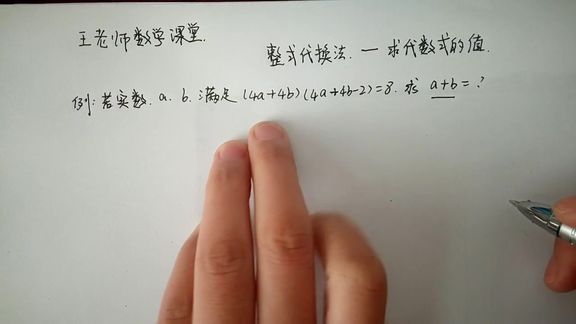 王老师数学课堂.
整式代换法. — 求代数式的值.
例: 若实数. a. b. 满足 (4a+4b)(4a+4b-2)=8. 求 a+b=?